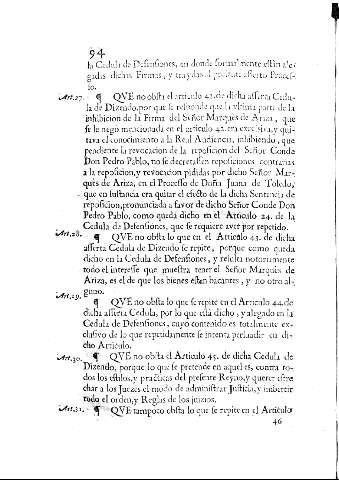 94
la Cedula de Defensiones, en donde formalmente estàn ale-
gadas dichas Firmas, y traydas al presente asserto Proces-
so.
Art.27. ¶ QVE no obsta el articulo 42. de dicha asserta Cedu-
la de Dizendo, por que se responde que la vltima parte de la
inhibicion de la Firma del Señor Marques de Ariza, que
se le negò mencionada en el articulo 42. era excessiva, y qui-
tava el conocimiento a la Real Audiencia, inhibiendo, que
pendiente la revocacion de la reposicion del Señor Conde
Don Pedro Pablo, no se decretassen reposiciones contrarias
a la reposicion, y revocacion pididas por dicho Señor Mar-
quès de Ariza, en el Processo de Doña Juana de Toledo,
que en sustancia era quitar el efecto de la dicha Sentencia de
reposicion, pronunciada a favor de dicho Señor Conde Don
Pedro Pablo, como queda dicho en el Articulo 24. de la
Cedula de Defensiones, que se requiere aver por repetido.
Art.28. ¶ QVE no obsta lo que en el Articulo 43. de dicha
asserta Cedula de Dizendo se repite, porque como queda
dicho en la Cedula de Defensiones, y resulta notoriamente
todo el interesse que muestra tener el Señor Marquès de
Ariza, es el de que los bienes estàn bacantes, y no otro al-
guno.
Art.29. ¶ QVE no obsta lo que se repite en el Articulo 44. de
dicha asserta Cedula, por lo que està dicho, y alegado en la
Cedula de Defensiones, cuyo contenido es totalmente ex-
clusivo de lo que repetidamente se intenta persuadir en di-
cho Articulo.
Art.30. ¶ QVE no obsta el Articulo 45. de dicha Cedula de
Dizendo, porque lo que se pretende en aquel es, contra to-
dos los estilos, y practicas del presente Reyno, y querer estre
char a los Juezes el modo de administrar Justicia, y imbertir
todo el orden, y Reglas de los juizios.
Art.31. ¶ QVE tampoco obsta lo que se repite en el Articulo
46